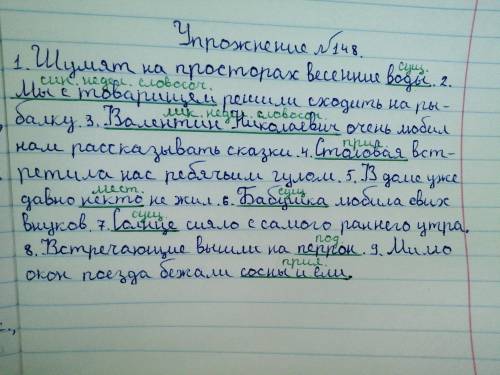 Упрожнение №148.
сущ.
1. Шумят на просторах весенние воды. 2.
син. недел. словосоч.
Мы с товарищем решили сходить на ры-
лик. недел. словосоч.
балку. 3. Валентин Николаевич очень любил
прил.
нам рассказывать сказки. 4. Столовая вст-
ретила нас ребячьим гулом. 5. В доме уже
мест. сущ
давно некто не жил. 6. Бабушка любила свих
сущ.
внуков. 7. Солнце сияло с самого раннего утра.
под
8. Встречающие вышли на перрон. 9. Мимо
прил.
окон поезда бежали сосны и ели.